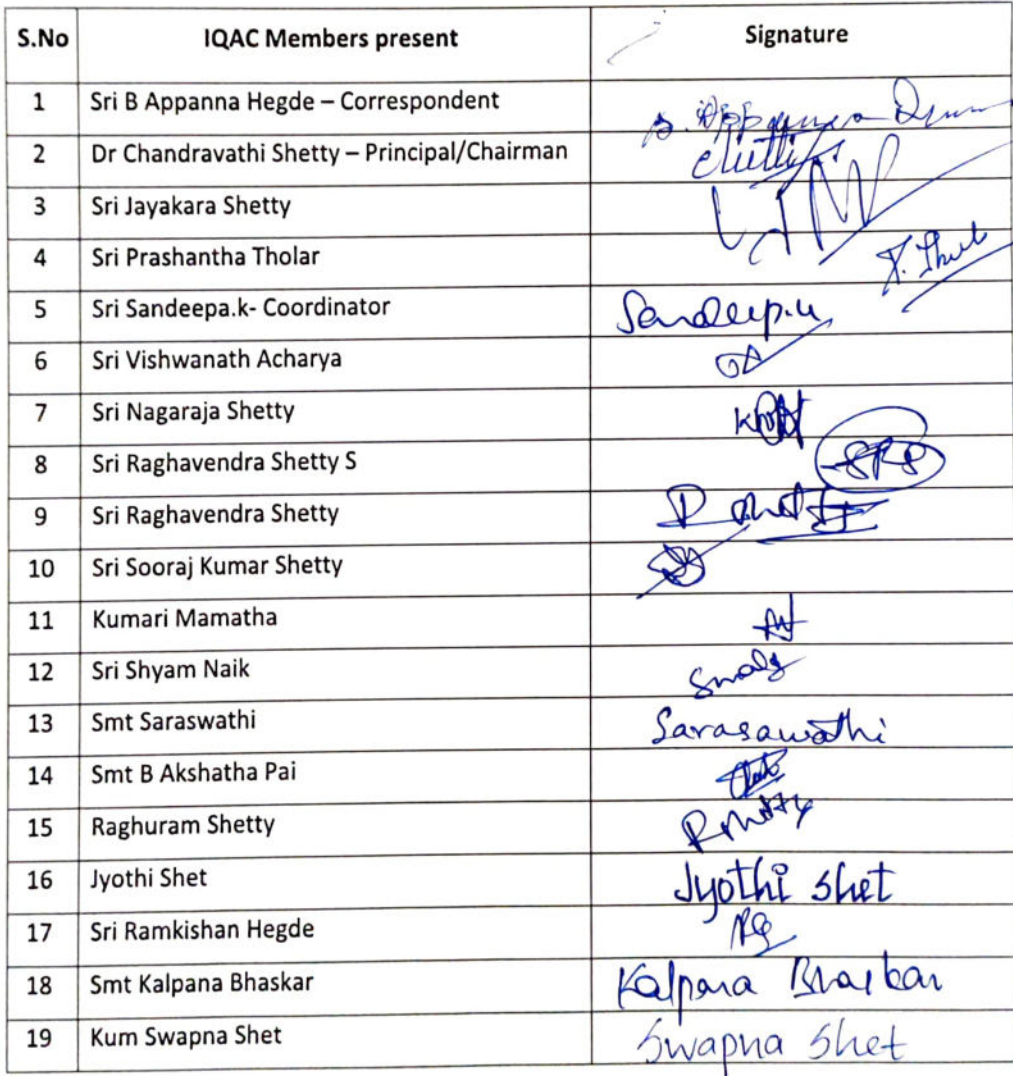 S.No IQAC Members present Signature
1 Sri B Appanna Hegde – Correspondent B. Appanna
2 Dr Chandravathi Shetty – Principal/Chairman
3 Sri Jayakara Shetty
4 Sri Prashantha Tholar
5 Sri Sandeepa.k- Coordinator Sandeep.k
6 Sri Vishwanath Acharya
7 Sri Nagaraja Shetty
8 Sri Raghavendra Shetty S SRS
9 Sri Raghavendra Shetty
10 Sri Sooraj Kumar Shetty
11 Kumari Mamatha
12 Sri Shyam Naik
13 Smt Saraswathi Sarasawathi
14 Smt B Akshatha Pai
15 Raghuram Shetty
16 Jyothi Shet Jyothi Shet
17 Sri Ramkishan Hegde
18 Smt Kalpana Bhaskar Kalpana Bhaskar
19 Kum Swapna Shet Swapna Shet